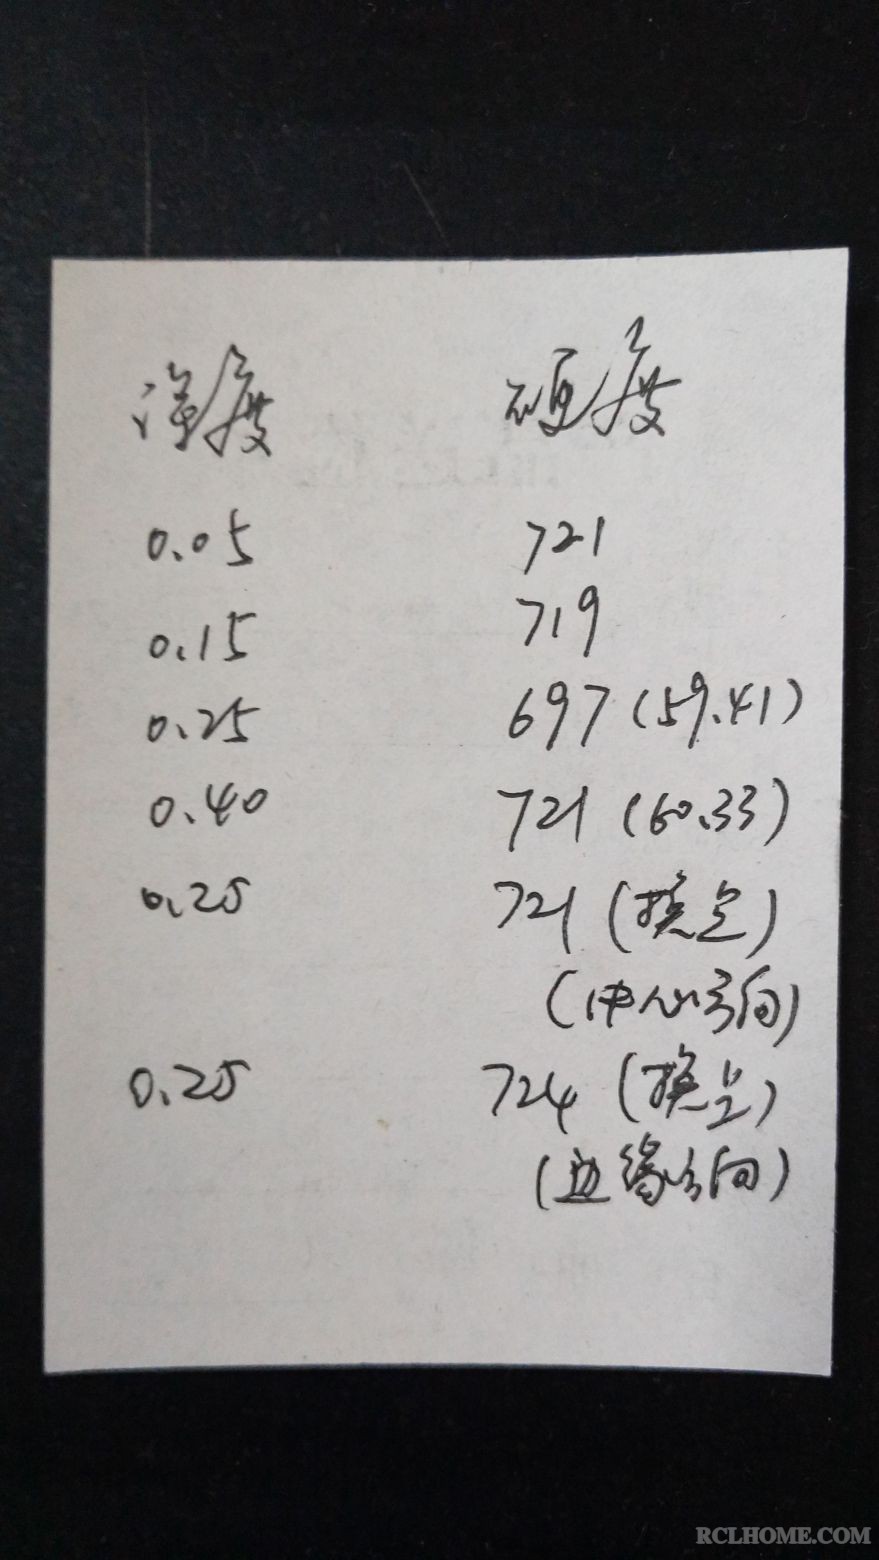 深度 硬度
0.05 721
0.15 719
0.25 697 (59.41)
0.40 721 (60.33)
0.25 721 (换点)
(中心方向)
0.25 724 (换点)
(边缘方向)
RCLHOME.COM